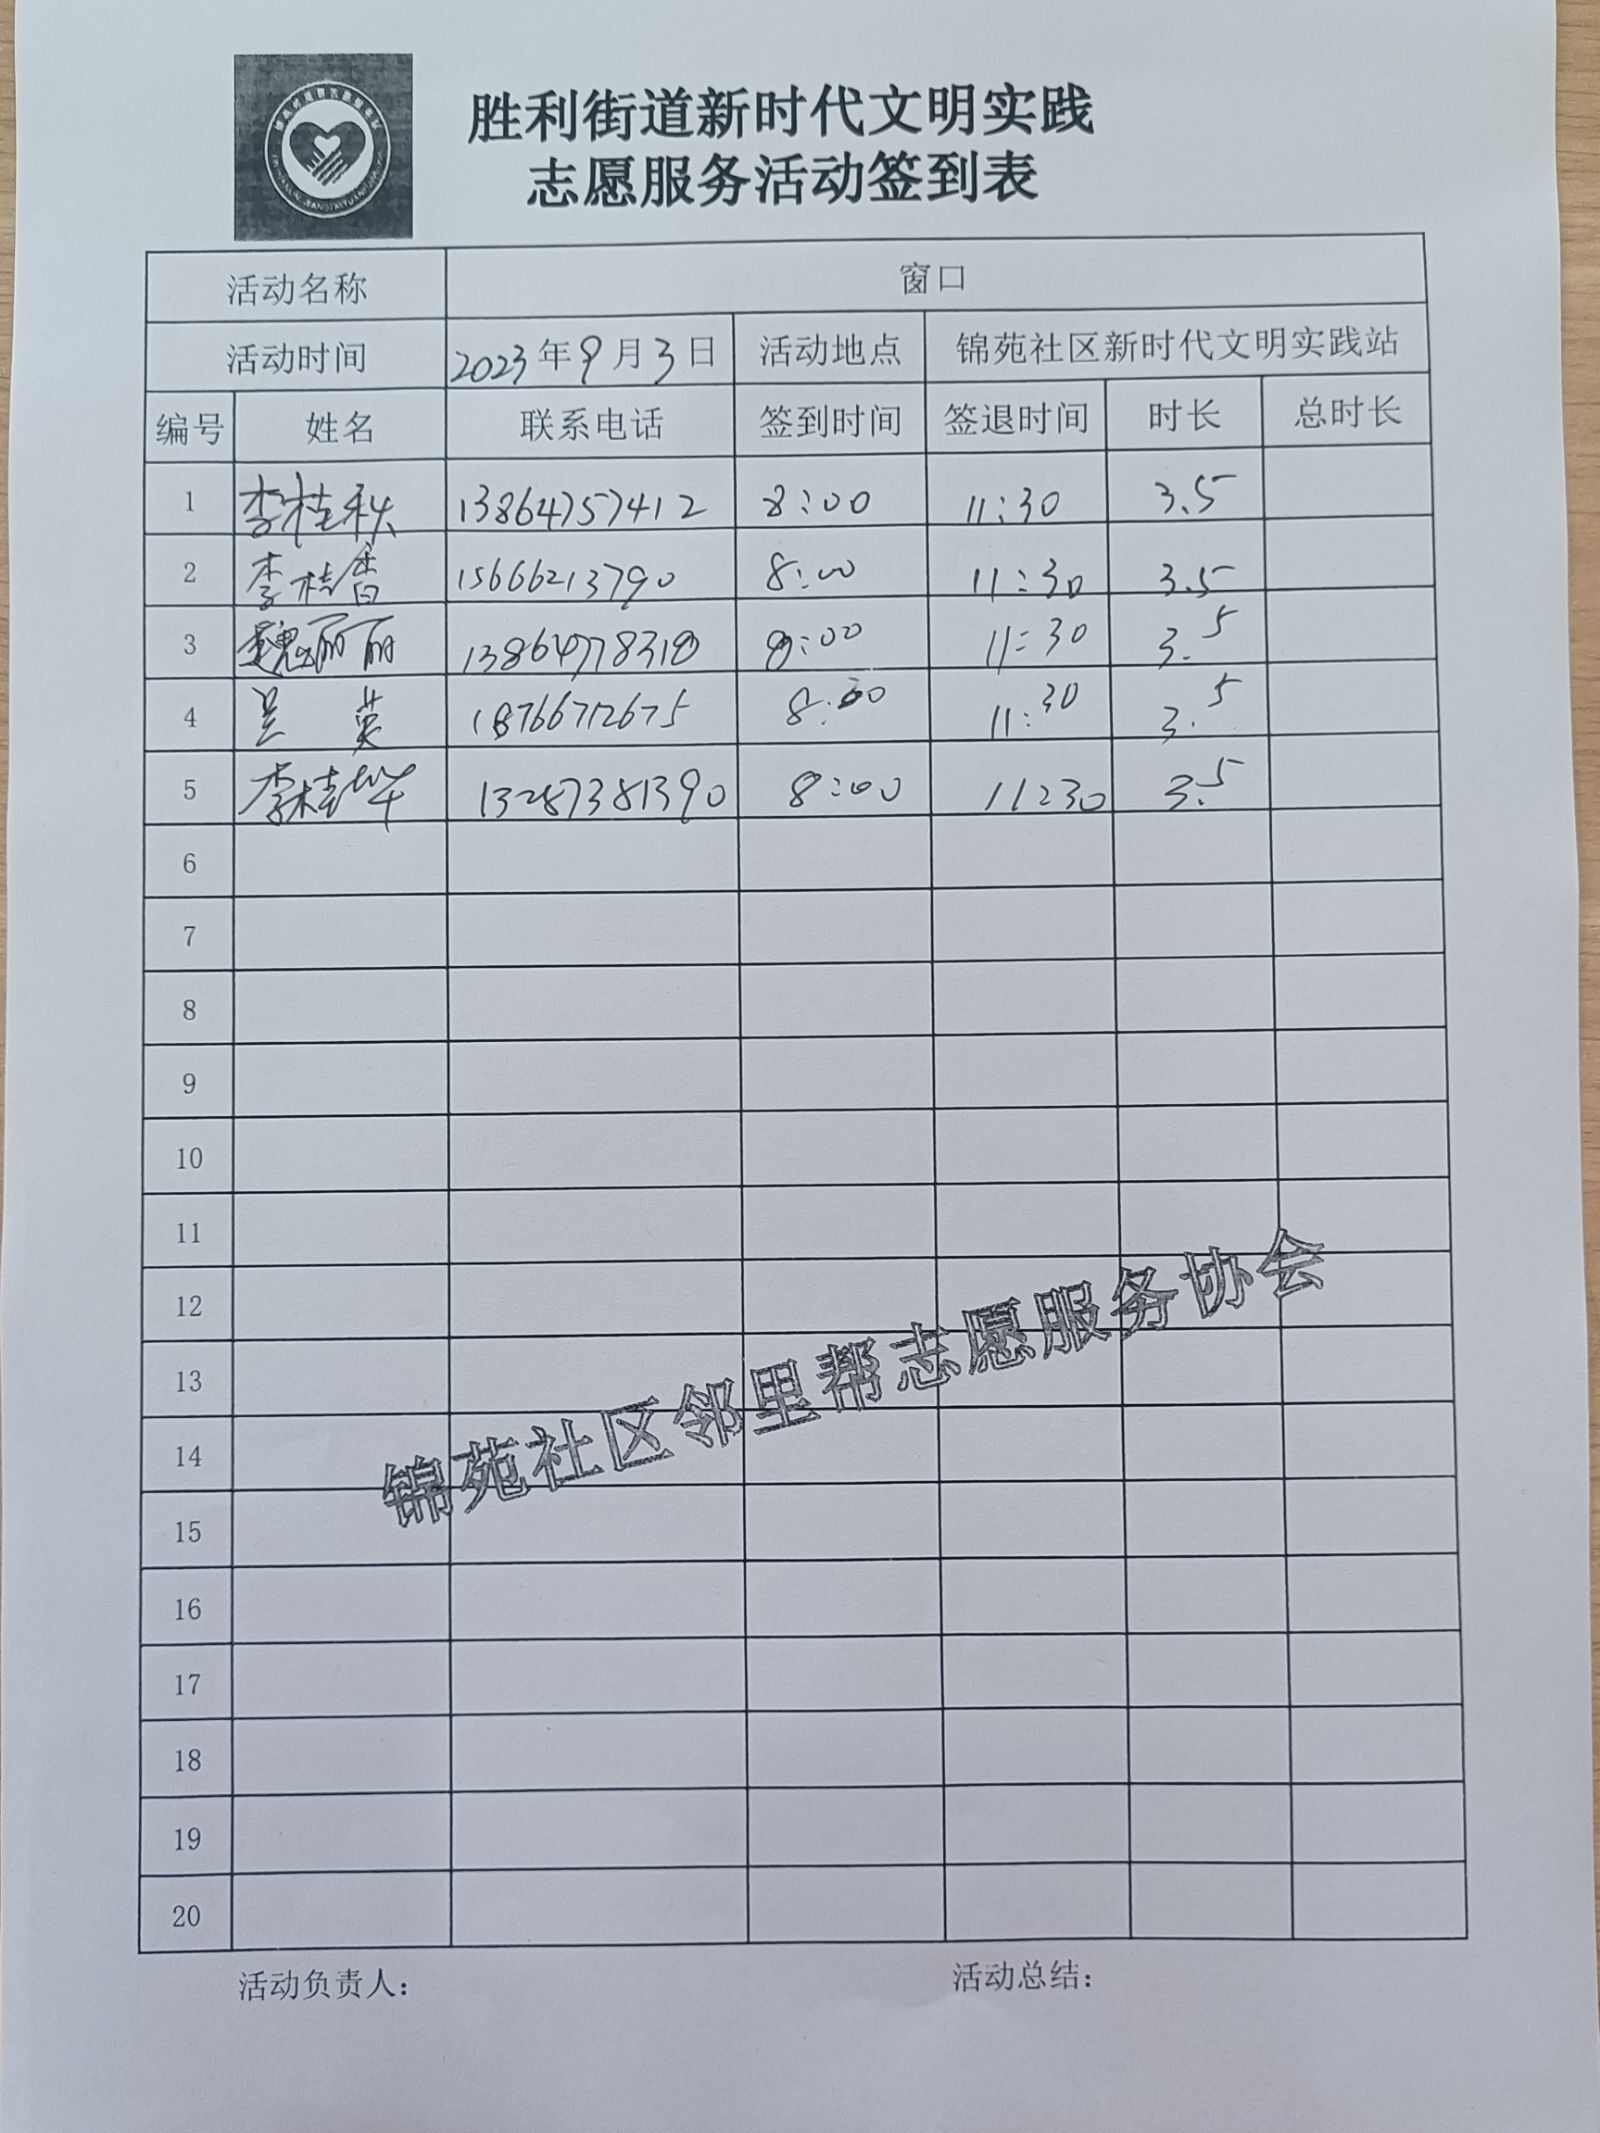 胜利街道新时代文明实践
志愿服务活动签到表
活动名称 窗口
活动时间 2023年9月3日 活动地点 锦苑社区新时代文明实践站
编号 姓名 联系电话 签到时间 签退时间 时长 总时长
1 李桂秋 13864757412 8:00 11:30 3.5
2 李桂香 15666213790 8:00 11:30 3.5
3 魏丽丽 13864778318 8:00 11:30 3.5
4 吴英 18766712675 8:00 11:30 3.5
5 李桂华 13287381390 8:00 11:30 3.5
6
7
8
9
10
11
12
13
14
15
16
17
18
19
20
锦苑社区邻里帮志愿服务协会
活动负责人: 活动总结: